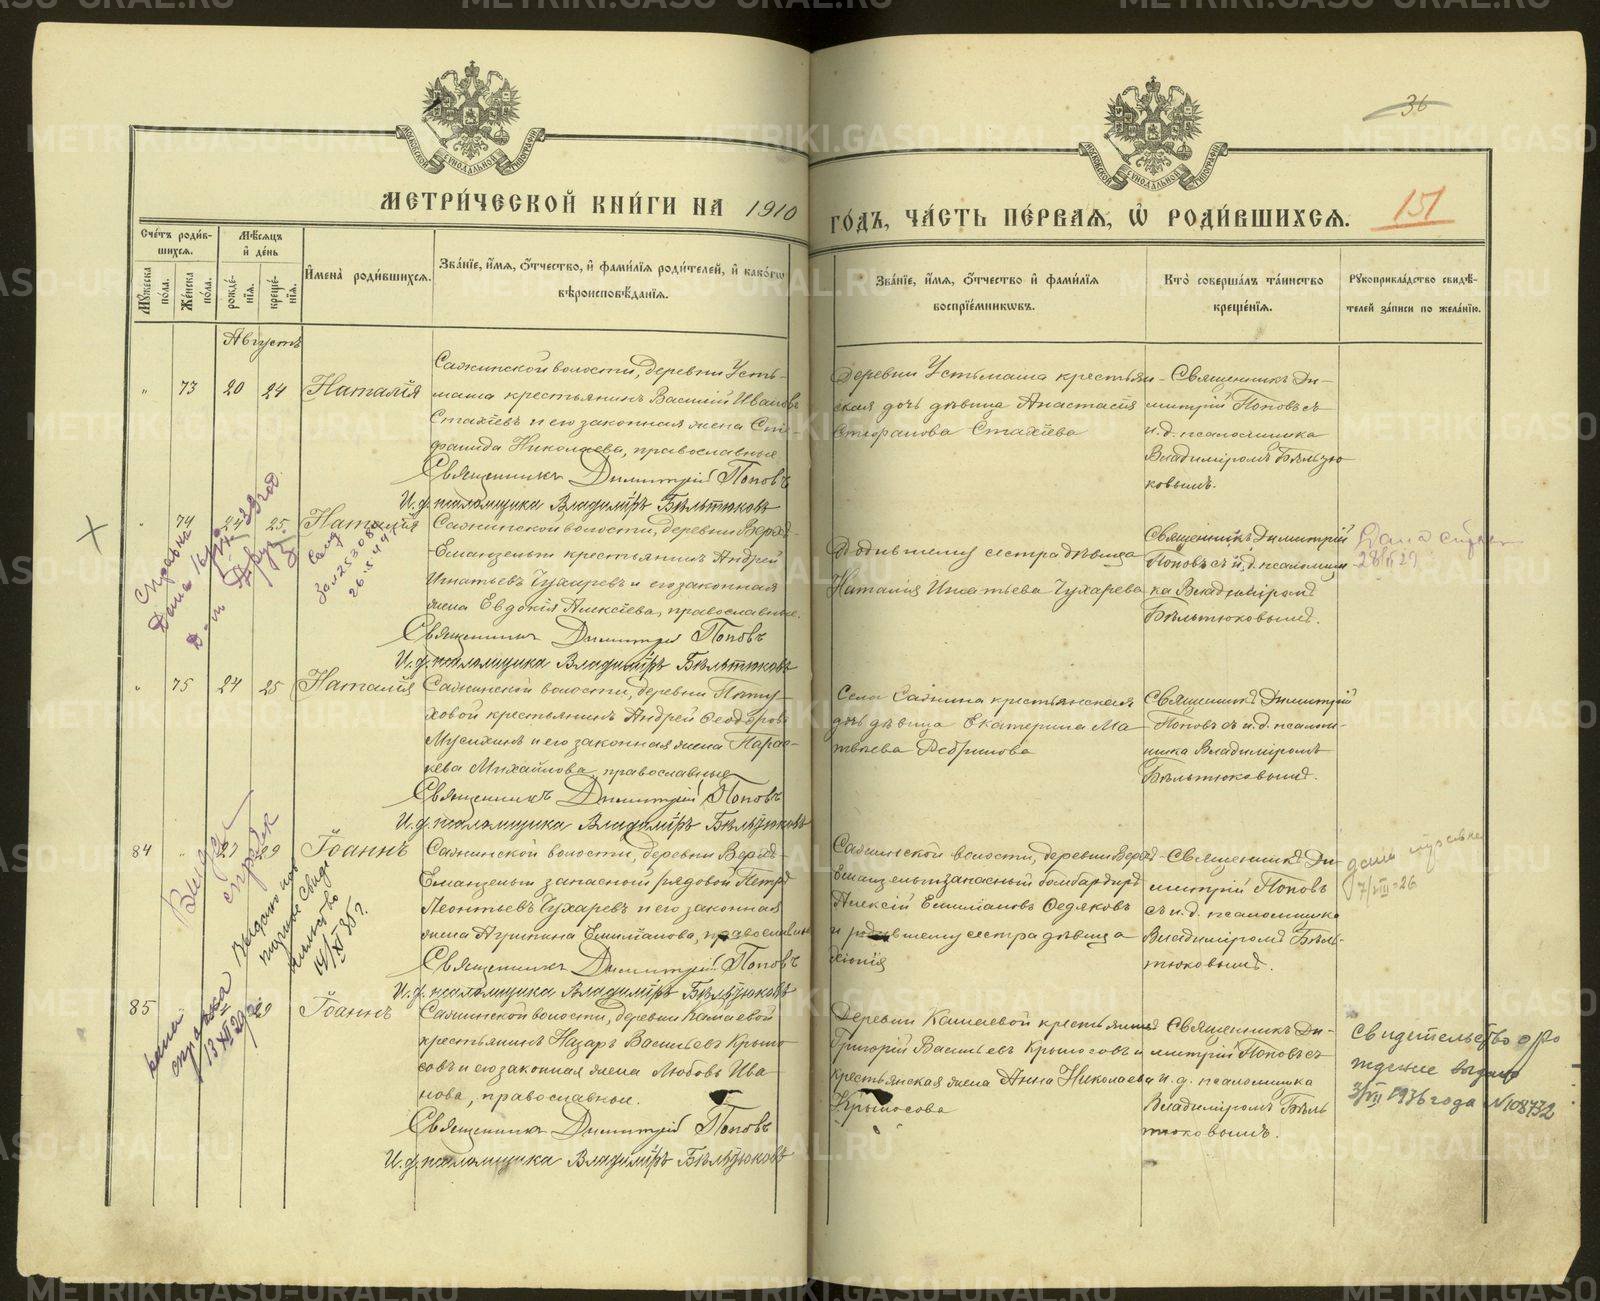 36
151
МЕТРИ́ЧЕСКОЙ КНИ́ГИ НА 1910
ГО́ДЪ, ЧА́СТЬ ПЕ́РВАѦ, Ѽ РОДИ́ВШИХСѦ.
Сче́тъ роди́в-
шихсѧ.
Мꙋ́жеска по́ла.
Же́нска по́ла.
Мѣ́сѧцъ
и҆ де́нь
рожде́-
нїѧ.
креще́-
нїѧ.
И҆мена̀ роди́вшихсѧ.
Зва́нїе, и҆́мѧ, ѻ҆́тчество, и҆ фами́лїѧ роди́телей, и҆ како́гѡ
вѣроисповѣ́данїѧ.
Зва́нїе, и҆́мѧ, ѻ҆́тчество и҆ фами́лїѧ
воспрїе́мникѡвъ.
Кто̀ соверша́лъ та́инство
креще́нїѧ.
Рꙋкоприкла́дство свидѣ́-
телей за́писи по жела́нїю.
Августъ
" 73 20 24 Наталія
Сажинской волости, деревни Усть-
маша крестьянинъ Василій Ивановъ
Стахѣевъ и его законная жена Сте-
фанида Николаева, православные
Священникъ Димитрій Поповъ
И.д. псаломщика Владиміръ Бѣльтюковъ
Деревни Устьмаша крестьян-
ская дочь дѣвица Анастасія
Стефанова Стахіева
Священникъ Ди-
митрій Поповъ съ
и.д. псаломщика
Владиміромъ Бѣльтю
ковымъ.
" 74 25 Наталія
Сажинской волости, деревни Верхъ-
Бманзельги крестьянинъ Андрей
Игнатьевъ Чухаревъ и его законная
жена Евдокія Алексіева, православные.
Священникъ Димитрій Поповъ
И.д. псаломщика Владиміръ Бѣльтюковъ
Родившему сестра дѣвица
Наталія Игнатьева Чухарева
Священникъ Димитрій
Поповъ съ и.д. псаломщи
ка Владиміромъ
Бѣльтюковымъ.
" 75 24 25 Наталія
Сажинской волости, деревни Пѣту-
ховой крестьянинъ Андрей Ѳеодоровъ
Мусихинъ и его законная жена Парас-
кева Михайлова, православные
Священникъ Димитрій Поповъ
И.д. псаломщика Владиміръ Бѣльтюковъ
Села Сажина крестьянская
дочь дѣвица Екатерина Ма
твѣева
Священникъ Димитрій
Поповъ съ и.д. псалом-
щика Владиміромъ
Бѣльтюковымъ.
84 " 29 Іоаннъ
Сажинской волости, деревни Верхъ-
Бманзельги запасной рядовой Петръ
Леонтьевъ Чухаревъ и его законная
жена Агрипина Емиліанова, православные
Священникъ Димитрій Поповъ
И.д. псаломщика Владиміръ Бѣльтюковъ
Сажинской волости, деревни Верхъ-
запасный бомбардиръ
Алексій Емиліановъ Ѳедяковъ
и родившему сестра дѣвица
Хіонія
Священникъ Ди-
митрій Поповъ
съ и.д. псаломщика
Владиміромъ Бѣль-
тюковымъ.
85 29 Іоаннъ
Сажинской волости, деревни Камаевой
крестьянинъ Назаръ Васильевъ Крыло
совъ и его законная жена Любовь Ива
нова, православные.
Священникъ Димитрій Поповъ
И.д. псаломщика Владиміръ Бѣльтюковъ
Деревни Камаевой крестьянинъ
Григорій Васильевъ Крылосовъ и
крестьянская жена Анна Николаева
Крылосова
Священникъ Ди-
митрій Поповъ съ
и.д. псаломщика
Владиміромъ Бѣль
тюковымъ.
Дана справка
28/ 29
Выдана
справк
Выдано пов
торное Свиде
тельство
14/XI 35 г.
справка
13 XII 29
7/VIII-26
Свидетельство о ро
ждение выдано
3/VII 1936 года №108732
МОСКОВСКОЙ СѴНОДАЛЬНОЙ ТИПОГРАФІИ
МОСКОВСКОЙ СѴНОДАЛЬНОЙ ТИПОГРАФІИ
METRIKI.GASO-URAL.RU